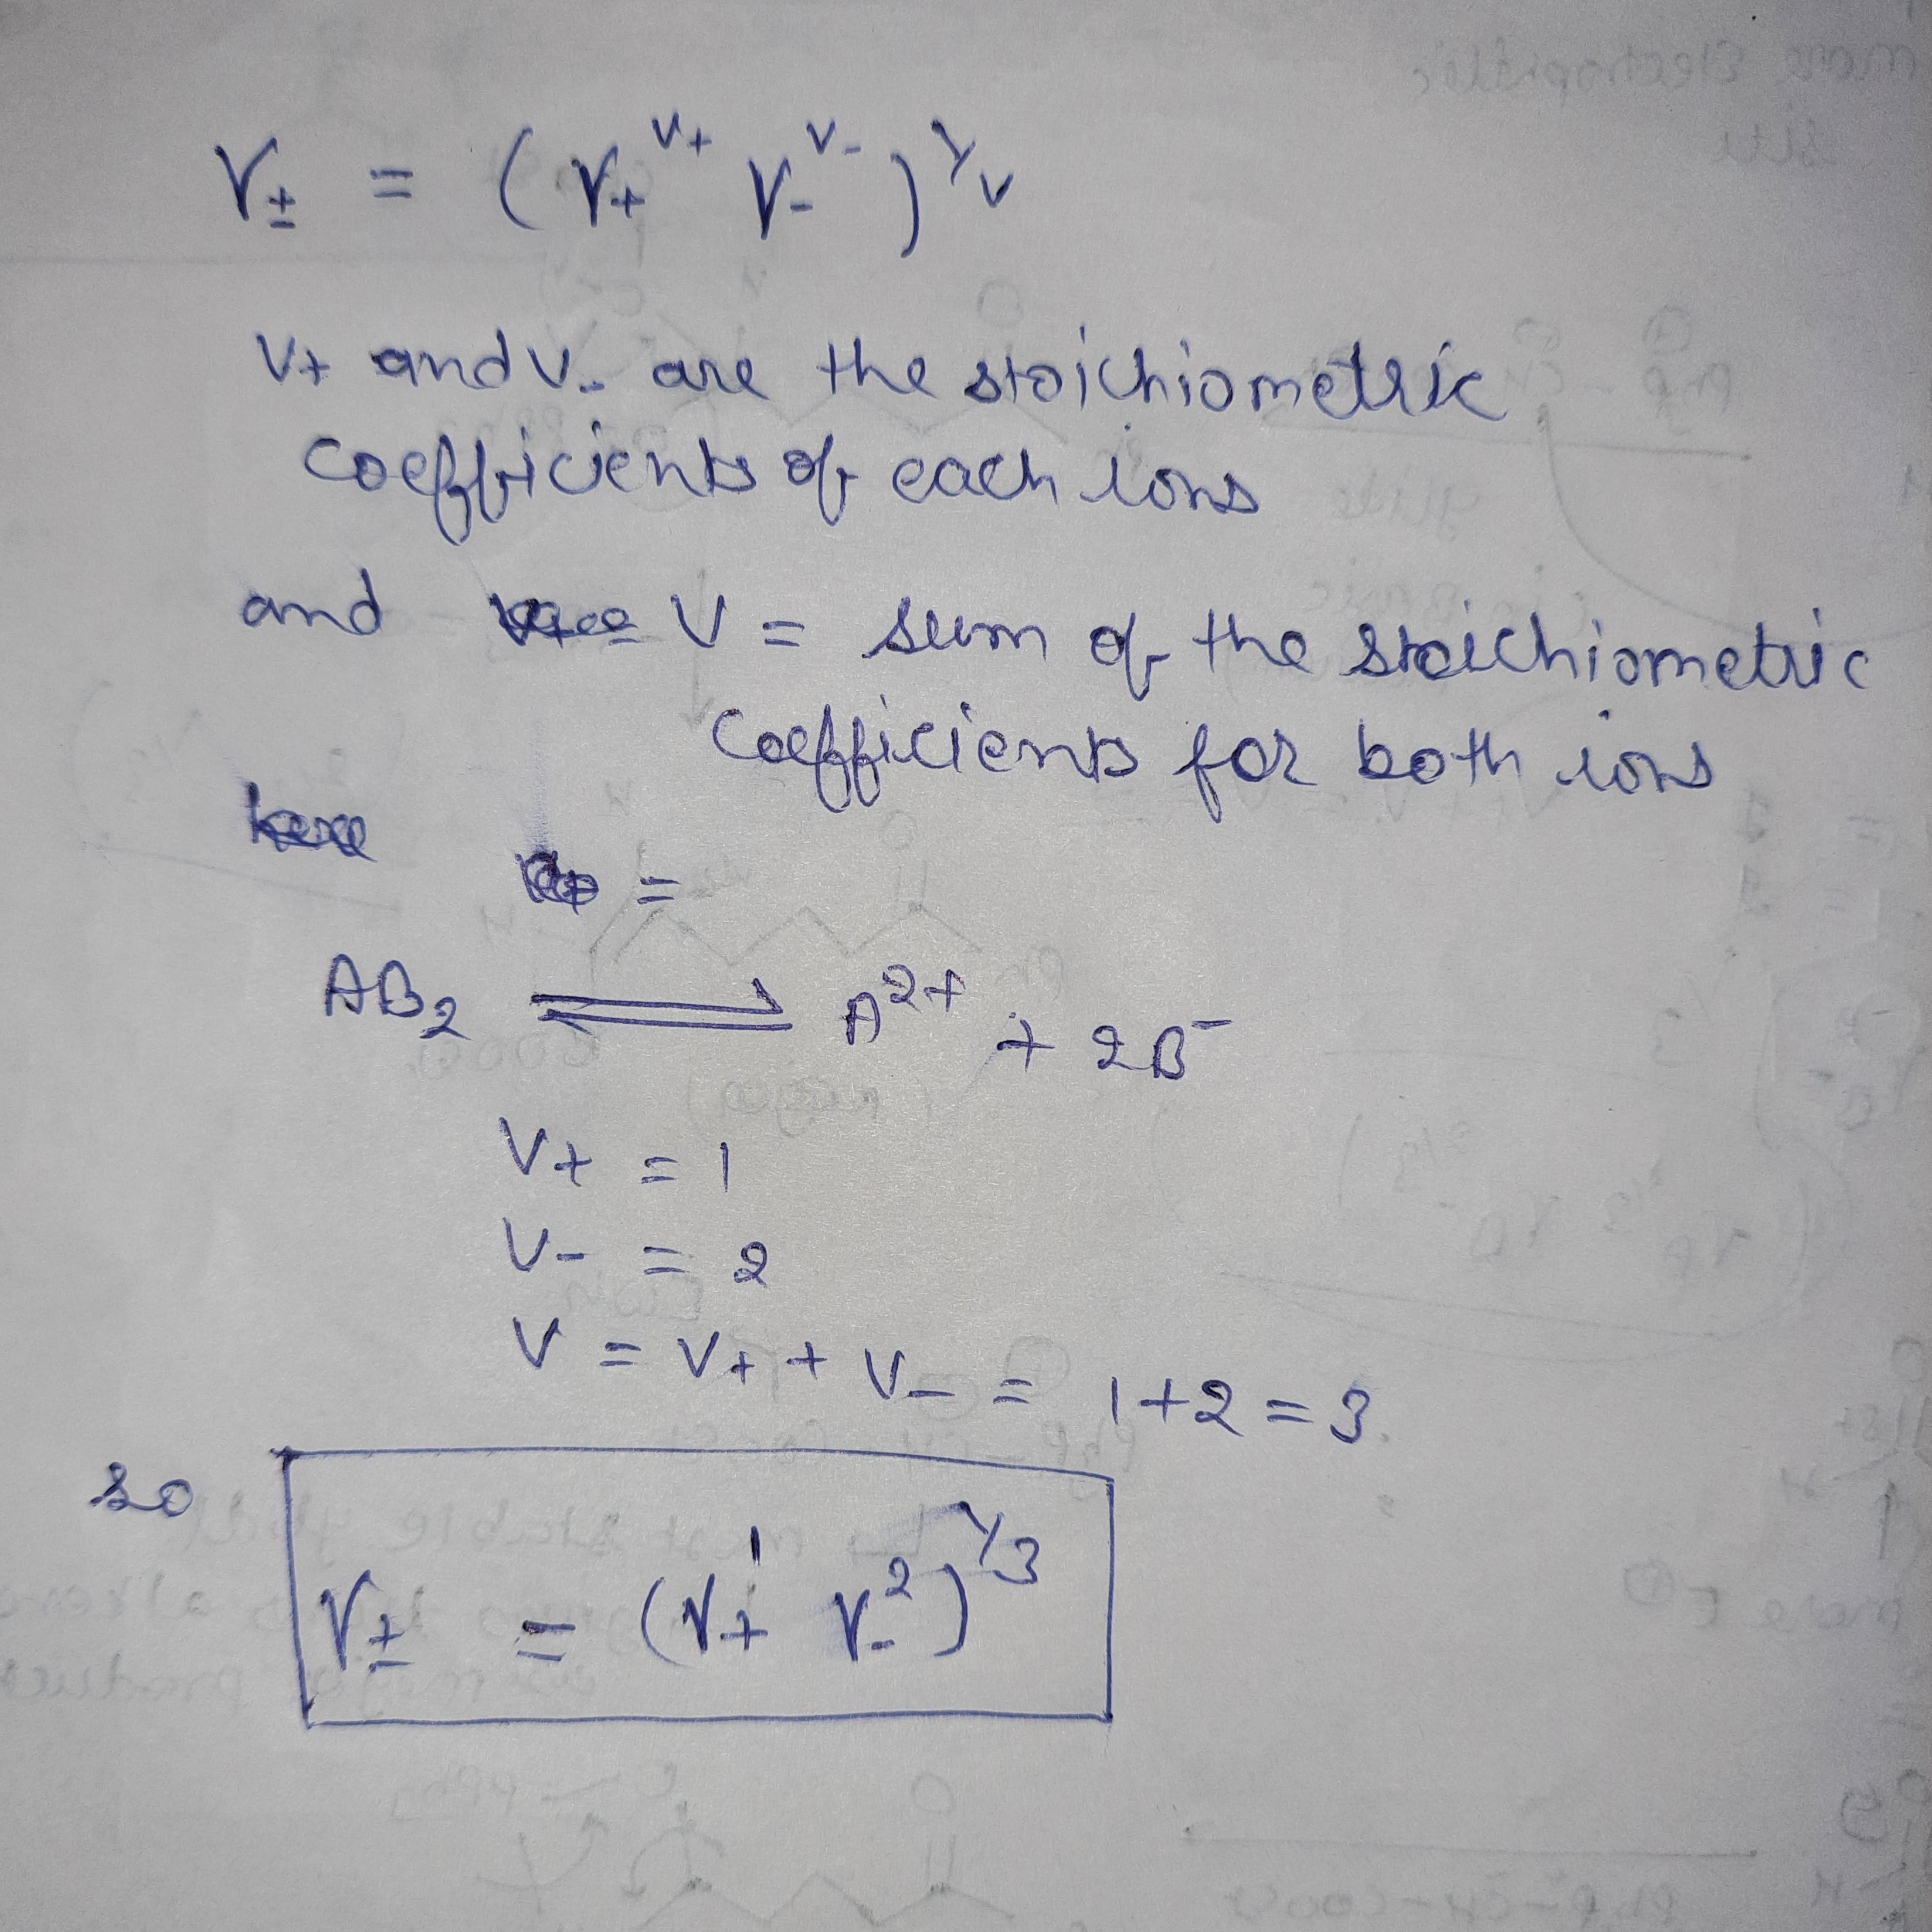 γ± = (γ+^ν+ γ-^ν-)^1/ν
ν+ and ν- are the stoichiometric
coefficients of each ions
and ν = sum of the stoichiometric
coefficients for both ions
=
AB₂ ⇌ A²⁺ + 2B⁻
ν+ = 1
ν- = 2
ν = ν+ + ν- = 1+2 = 3
so
γ± = (γ+^1 γ-^2)^1/3